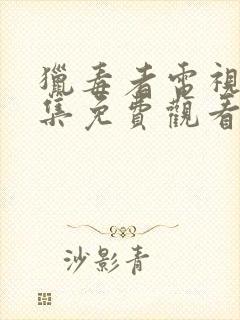 獵毒者電視
集免費觀看
沙影青